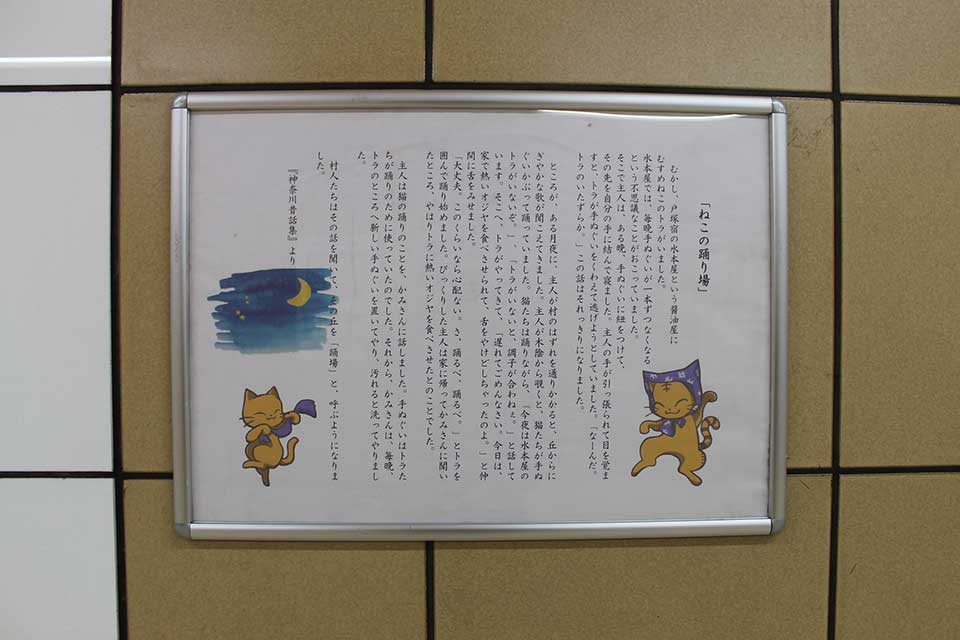 「ねこの踊り場」
むかし、戸塚宿の水本屋という醤油屋に
むすめねこのトラがいました。
水本屋では、毎晩手ぬぐいが一本ずつなくなる
という不思議なことがおこっていました。
そこで主人は、ある晩、手ぬぐいに紐をつけて、
その先を自分の手に結んで寝ました。主人の手が引っ張られて目を覚ま
すと、トラが手ぬぐいをくわえて逃げようとしていました。「なーんだ。
トラのいたずらか。」この話はそれっきりになりました。
ところが、ある月夜に、主人が村のはずれを通りかかると、丘からに
ぎやかな歌が聞こえてきました。主人が木陰から覗くと、猫たちが手ぬ
ぐいかぶって踊っていました。猫たちは踊りながら、「今夜は水本屋の
トラがいないぞ。」、「トラがいないと、調子が合わねぇ。」と話して
います。そこへ、トラがやってきて、「遅れてごめんなさい。今日は、
家で熱いオジヤを食べさせられて、舌をやけどしちゃったのよ。」と仲
間に舌をみせました。
「大丈夫。このくらいなら心配ない。さ、踊るべ、踊るべ。」とトラを
囲んで踊り始めました。びっくりした主人は家に帰ってかみさんに聞い
たところ、やはりトラに熱いオジヤを食べさせたとのことでした。
主人は猫の踊りのことを、かみさんに話しました。手ぬぐいはトラた
ちが踊りのために使っていたのでした。それから、かみさんは、毎晩、
トラのところへ新しい手ぬぐいを置いてやり、汚れると洗ってやりまし
た。
村人たちはその話を聞いて、その丘を「踊場」と、呼ぶようになりま
した。
『神奈川昔話集』より